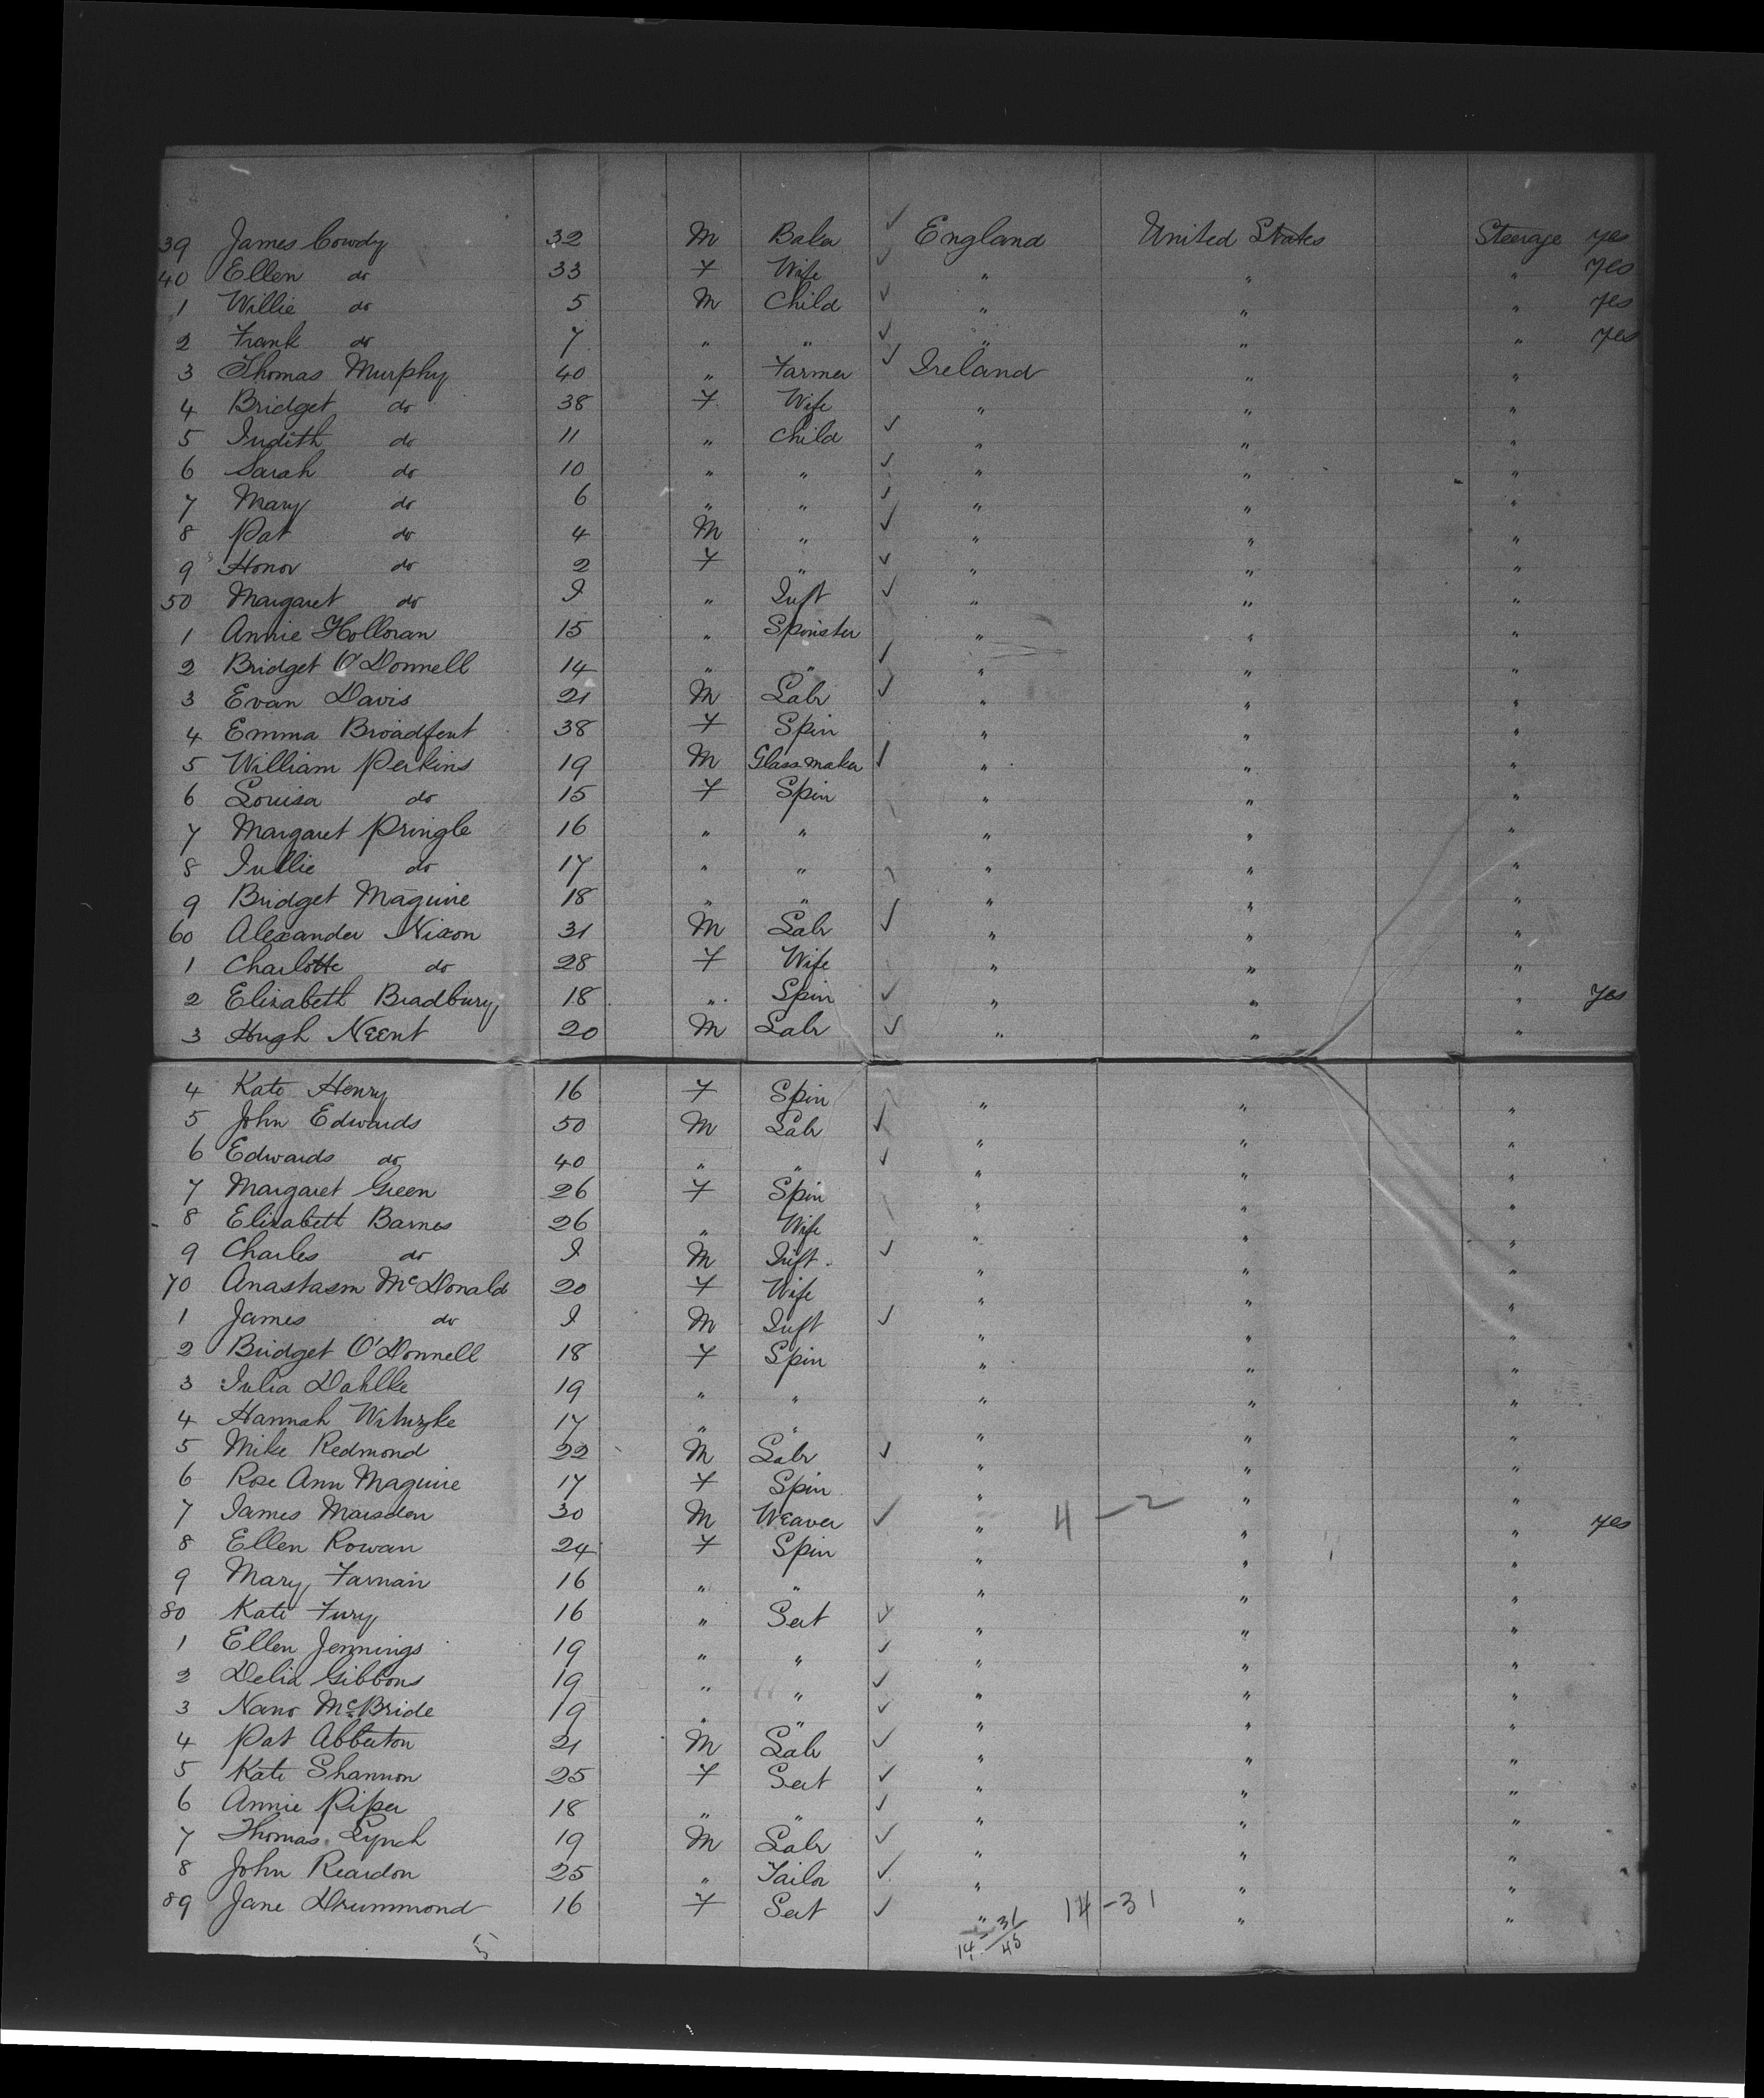 39 James Cowdy 32 M Baker ✓ England United States Steerage yes
40 Ellen do 33 F Wife ✓ " " " yes
1 Willie do 5 M Child ✓ " " " yes
2 Frank do 7 " " ✓ " " " yes
3 Thomas Murphy 40 " Farmer ✓ Ireland " "
4 Bridget do 38 F Wife " " "
5 Judith do 11 " Child ✓ " " "
6 Sarah do 10 " " ✓ " " "
7 Mary do 6 " " ✓ " " "
8 Pat do 4 M " ✓ " " "
9 Honor do 2 F " ✓ " " "
50 Margaret do I " Inft ✓ " " "
1 Annie Holloran 15 " Spinster " " "
2 Bridget O'Donnell 14 " " ✓ " " "
3 Evan Davis 21 M Labr ✓ " " "
4 Emma Broadfent 38 F Spin " " "
5 William Perkins 19 M Glassmaker ✓ " " "
6 Louisa do 15 F Spin " " "
7 Margaret Pringle 16 " " " " "
8 Jullie do 17 " " " " "
9 Bridget Maguire 18 " " " " "
60 Alexander Nixon 31 M Labr ✓ " " "
1 Charlotte do 28 F Wife " " "
2 Elizabeth Bradbury 18 " Spin ✓ " " " yes
3 Hugh Neent 20 M Labr ✓ " " "
4 Kate Henry 16 F Spin " " "
5 John Edwards 50 M Labr ✓ " " "
6 Edwards do 40 " " ✓ " " "
7 Margaret Green 26 F Spin " " "
8 Elizabeth Barnes 26 " Wife " " "
9 Charles do I M Inft ✓ " " "
70 Anastasm McDonald 20 F Wife " " "
1 James do I M Inft ✓ " " "
2 Bridget O'Donnell 18 F Spin " " "
3 Julia Dahlke 19 " " " " "
4 Hannah 17 " " " " "
5 Mike Redmond 22 M Labr ✓ " " "
6 Rose Ann Maguire 17 F Spin " " "
7 James Marsden 30 M Weaver ✓ " 4-2 " " yes
8 Ellen Rowan 24 F Spin " " "
9 Mary Farnain 16 " " " " "
80 Kate Fury 16 " Sert ✓ " " "
1 Ellen Jennings 19 " " ✓ " " "
2 Delia Gibbons 19 " " ✓ " " "
3 Nano McBride 19 " " ✓ " " "
4 Pat Abberton 21 M Labr ✓ " " "
5 Kate Shannon 25 F Sert ✓ " " "
6 Annie Piper 18 " " ✓ " " "
7 Thomas Lynch 19 M Labr ✓ " " "
8 John Reardon 25 " Tailor ✓ " " "
89 Jane Drummond 16 F Sert ✓ " 14-31 " "
5 14-31/45